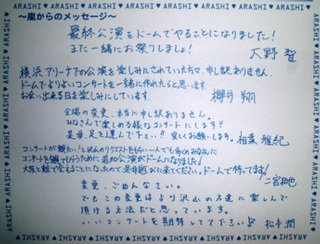 ARASHI ♥ ARASHI ♥ ARASHI ♥ ARASHI ♥ ARASHI ♥ ARASHI
〜嵐からのメッセージ〜
最終公演をドームでやることになりました!
また一緒にお祭りしましょ!
大野 智
横浜アリーナでの公演を楽しみにされていた方々、申し訳ありません。
ドームでよりよいコンサートを一緒に作れたらと思います。
お会い出来る日を楽しみにしています。
櫻井 翔
会場の変更、本当に申し訳ありません。
みなさんで楽しめる様なコンサートにします!!
是非、足を運んで下さい!! 宜しくお願いします。
相葉 雅紀
コンサートが観たい!と沢山のリクエストをもらい一人でも多くのみなさんに
コンサートを観てもらうために追加公演がドームになりました!
二宮和也
変更、ごめんなさい。
でもこの変更はより沢山の人達に楽しんで
頂ける方法だと思っています。
いいコンサートを期待してて下さい
松本 潤